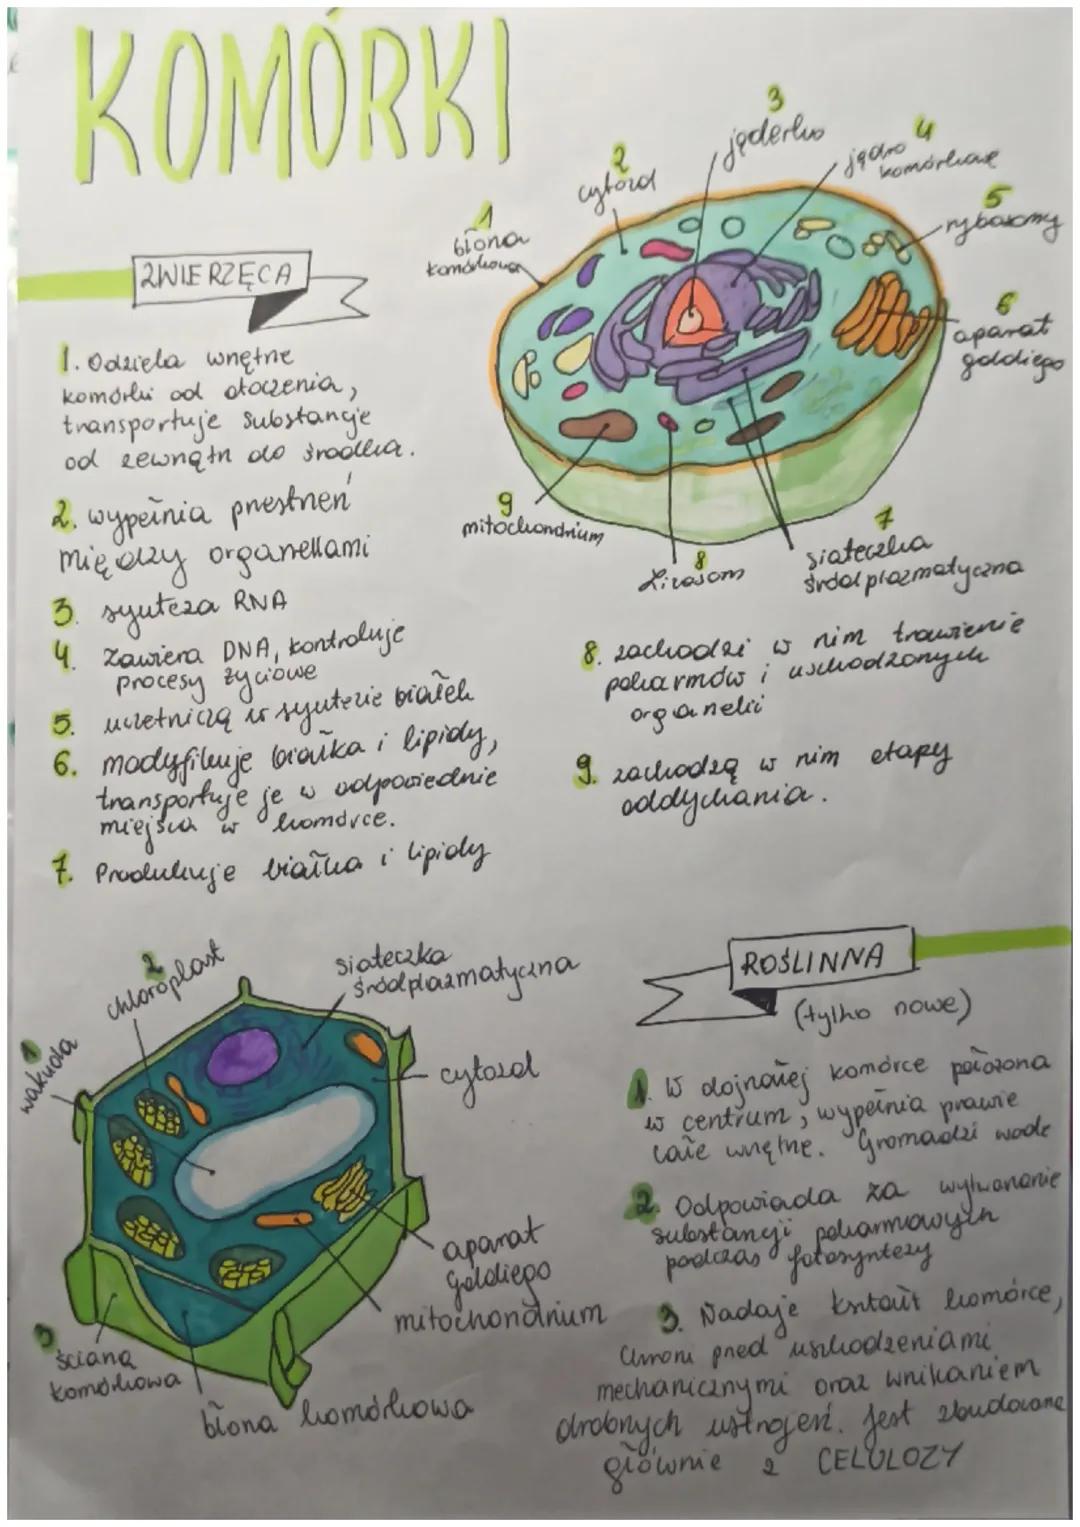 KOMÓRKI
ZWIERZĘCA
1. Odziela wnętrze
komórki od otoczenia,
transportuje substancje
od zewnątrz do środka.
2. wypełnia przestrzeń
między organellami
3. synteza RNA
4. Zawiera DNA, kontroluje
procesy życiowe
5. uczetniczą w syntezie białek
6. modyfikuje białka i lipidy,
transportuje je w odpowiednie
miejsca w komórce.
7. Produkuje białka i lipidy
1
błona
komórkowa
2
cytozol
3
jąderko
4
jądro
komórkowe
5
rybosomy
6
aparat
goldiego
7
siateczka
śródplazmatyczna
8
Lizosom
9
mitochondrium
8. zachodzi w nim trawienie
pokarmów i uszkodzonych
organelli
9. zachodzą w nim etapy
oddychania.
ROŚLINNA
(tylko nowe)
1
wakuola
2
chloroplast
siateczka
śródplazmatyczna
cytozol
aparat
Goldiego
mitochondrium
3
ściana
komórkowa
błona komórkowa
1. W dojrzałej komórce położona
w centrum, wypełnia prawie
całe wnętrze. Gromadzi wodę
2. Odpowiada za wytwarzanie
substancji pokarmowych
podczas fotosyntezy
3. Nadaje kształt komórce,
chroni przed uszkodzeniami
mechanicznymi oraz wnikaniem
drobnych ustrojeń. Jest zbudowana
głównie z CELULOZY